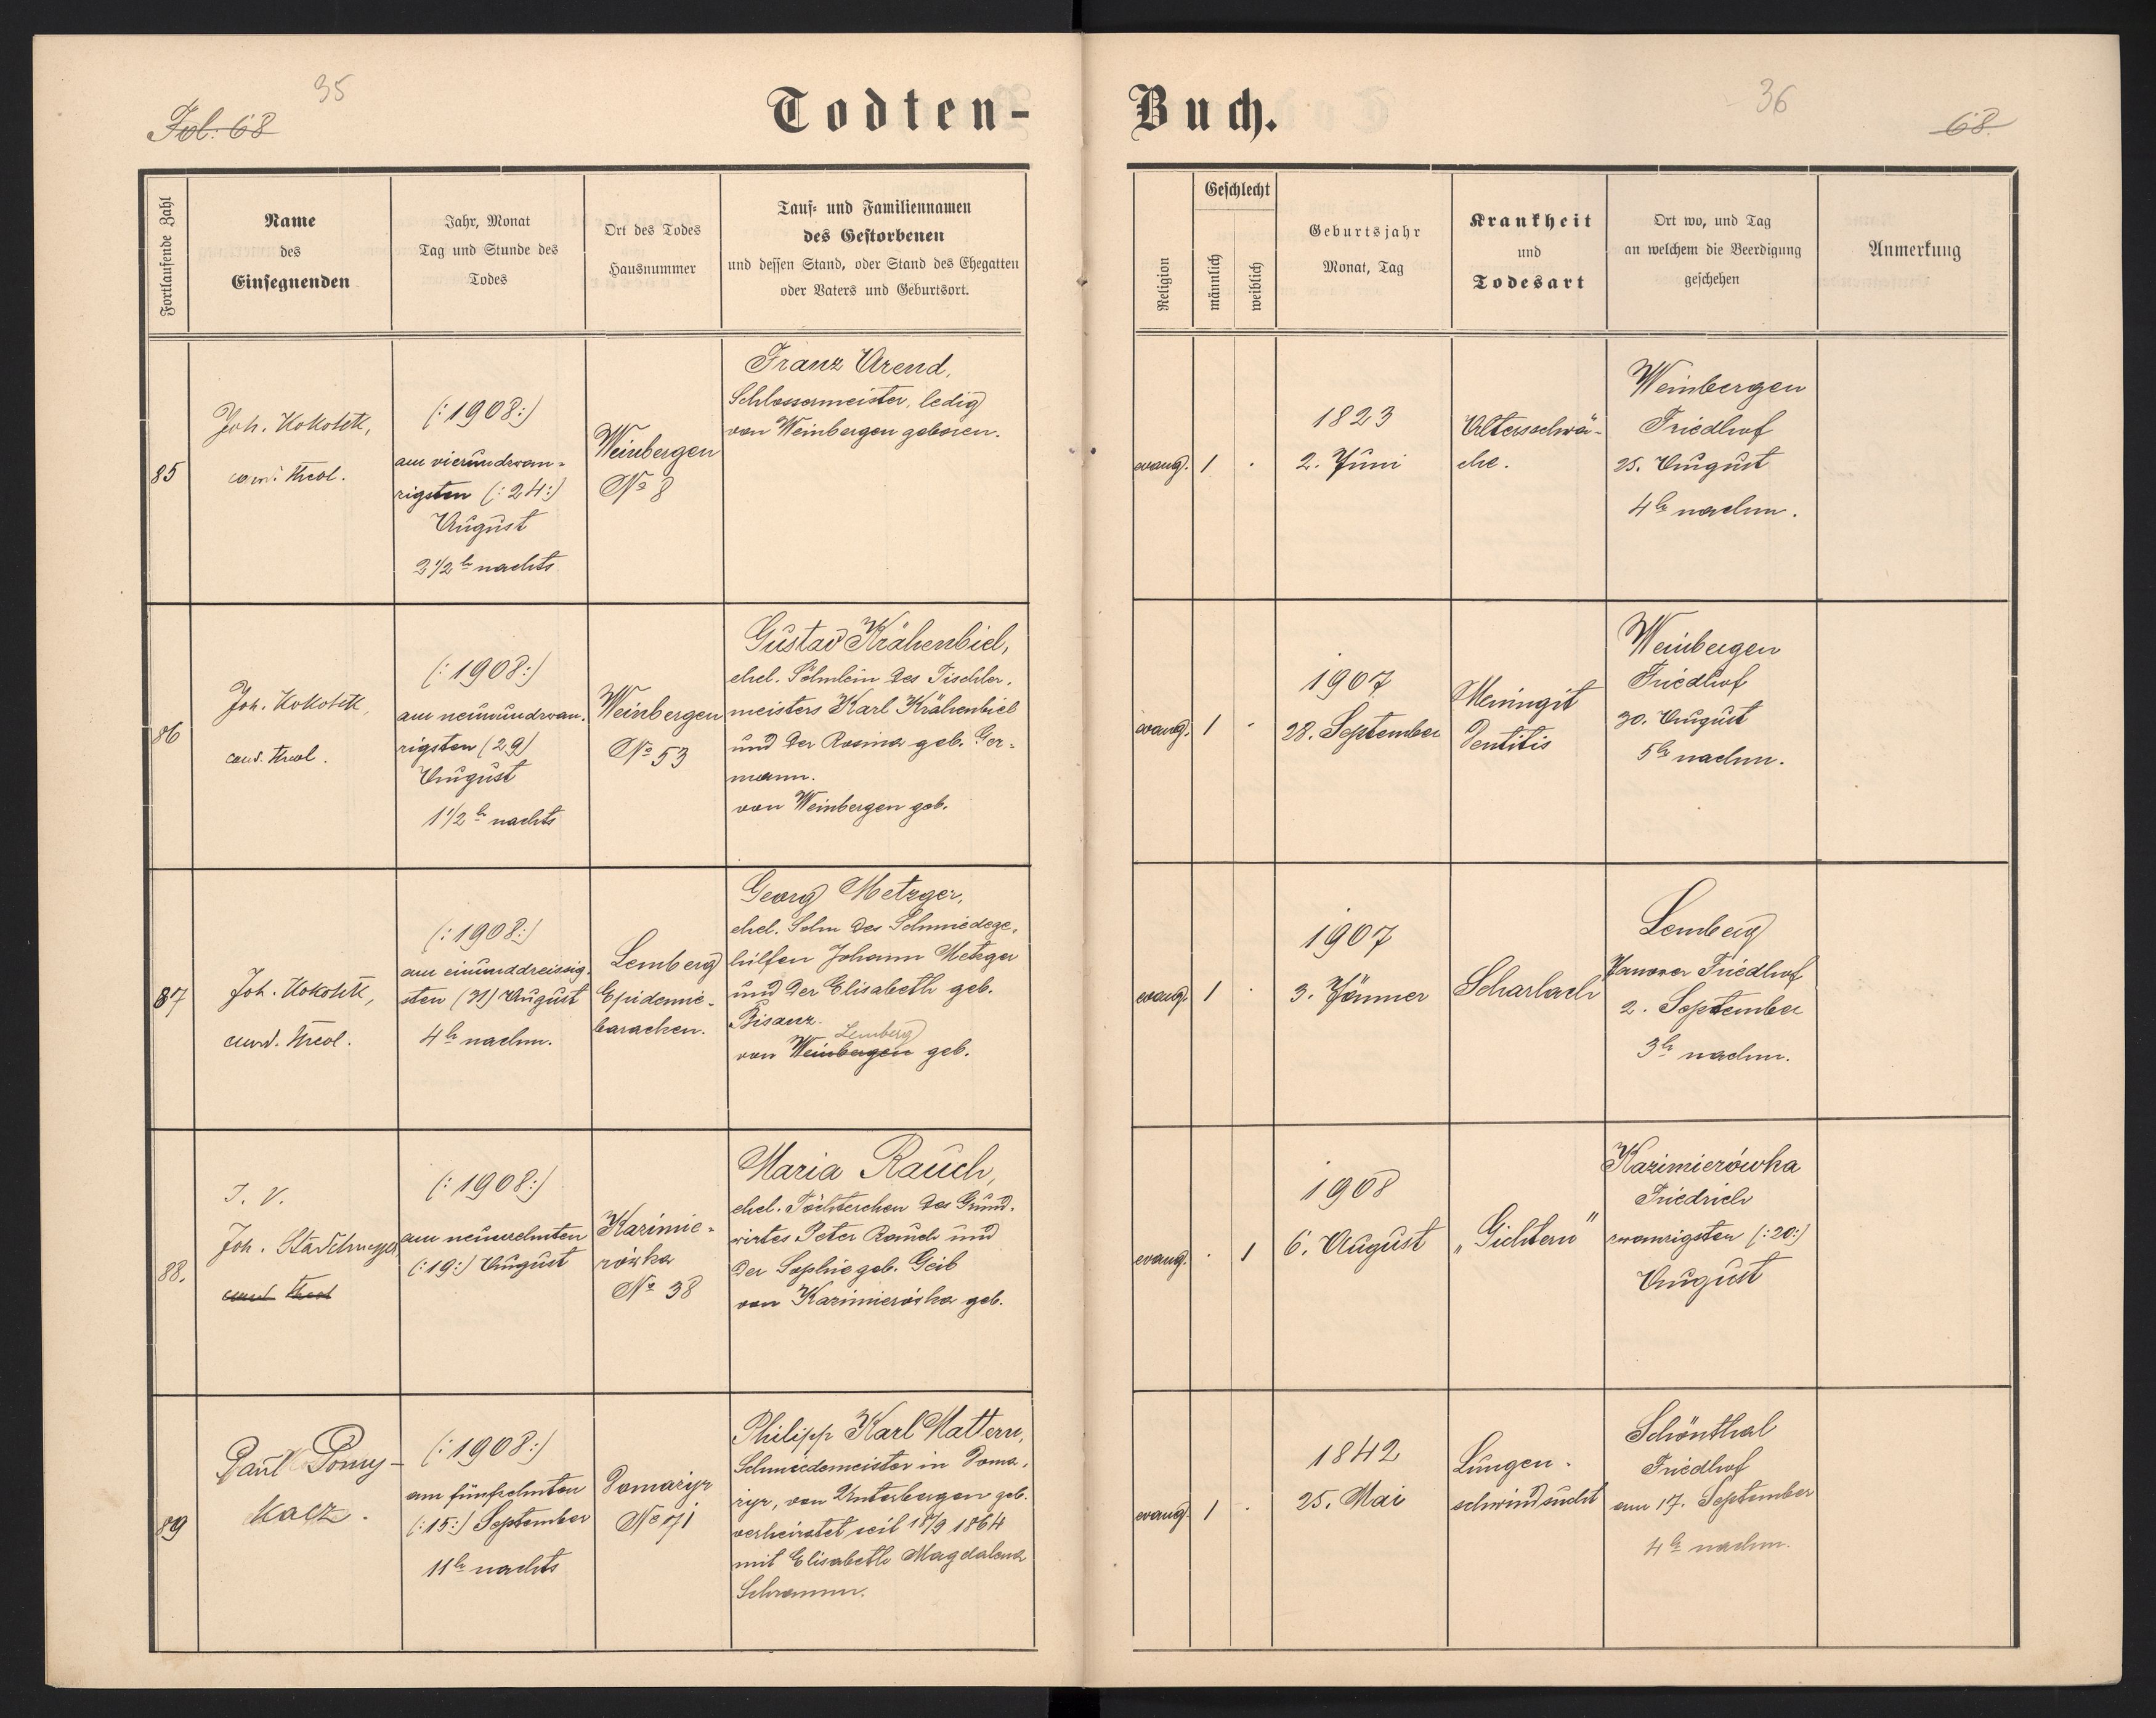 35
Fol. 68
Todten-
Buch.
36
68.
Fortlaufende Zahl
Name
des
Einsegnenden
Jahr, Monat
Tag und Stunde des
Todes
Ort des Todes
Hausnummer
Tauf- und Familiennamen
des Gestorbenen
und dessen Stand, oder Stand des Ehegatten
oder Vaters und Geburtsort.
Religion
Geschlecht
männlich
weiblich
Geburtsjahr
Monat, Tag
Krankheit
und
Todesart
Ort wo, und Tag
an welchem die Beerdigung
geschehen
Anmerkung
85
Joh. Kokotek,
cand. theol.
(: 1908 :)
am vierundzwan-
zigsten (: 24 :)
August
2 1/2 h nachts
Weinbergen
No 8
Franz Arend,
Schlossermeister, ledig
von Weinbergen geboren.
evang.
1
.
1823
2. Juni
Altersschwä-
che.
Weinbergen
Friedhof
25. August
4 h nachm.
86
Joh. Kokotek,
cand. theol.
(: 1908 :)
am neunundzwan-
zigsten (29)
August
1 1/2 h nachts
Weinbergen
No 53
Gustav Krähenbiel,
ehel. Söhnlein des Tischler-
meisters Karl Krähenbiel
und der Rosina geb. Ger-
mann.
von Weinbergen geb.
evang.
1
.
1907
28. September
Meningit
Dentitis
Weinbergen
Friedhof
30. August
5 h nachm.
87
Joh. Kokotek,
cand. theol.
(: 1908 :)
am einunddreissig-
sten (31) August
4 h nachm.
Lemberg
Epidemie-
baracken.
Georg Metzger,
ehel. Sohn des Schmiedege-
hülfen Johann Metzger
und der Elisabeth geb.
Bisanz.
Lemberg
von Weinbergen geb.
evang.
1
.
1907
3. Jänner
Scharlach
Lemberg
Janower Friedhof
2. September
3 h nachm.
88.
I. V.
Joh. Stadtmeyer
cand. theol
(: 1908 :)
am neunzehnten
(: 19 :) August
Kazimie-
rówka
No 38
Maria Rauch,
ehel. Töchterchen des Grund-
wirtes Peter Rauch und
der Sophie geb. Geib
von Kazimierówka geb.
evang.
.
1
1908
6. August
„Gichtern"
Kazimierówka
Friedrich
zwanzigsten (: 20 :)
August
89
Paul Pomy-
kacz.
(: 1908 :)
am fünfzehnten
(: 15 :) September
11 h nachts
Domazyr
No 71
Philipp Karl Mattern,
Schmiedemeister in Doma-
zyr, von Unterbergen geb.
verheiratet seit 18/9 1864
mit Elisabeth Magdalena
Schramm.
evang.
1
.
1842
25. Mai
Lungen-
schwindsucht
Schönthal
Friedhof
am 17. September
4 h nachm.